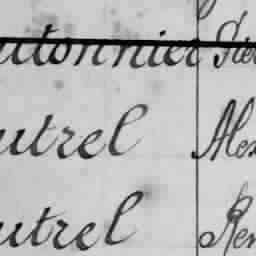 utonnier Pier
utrel Alex
utrel Ren